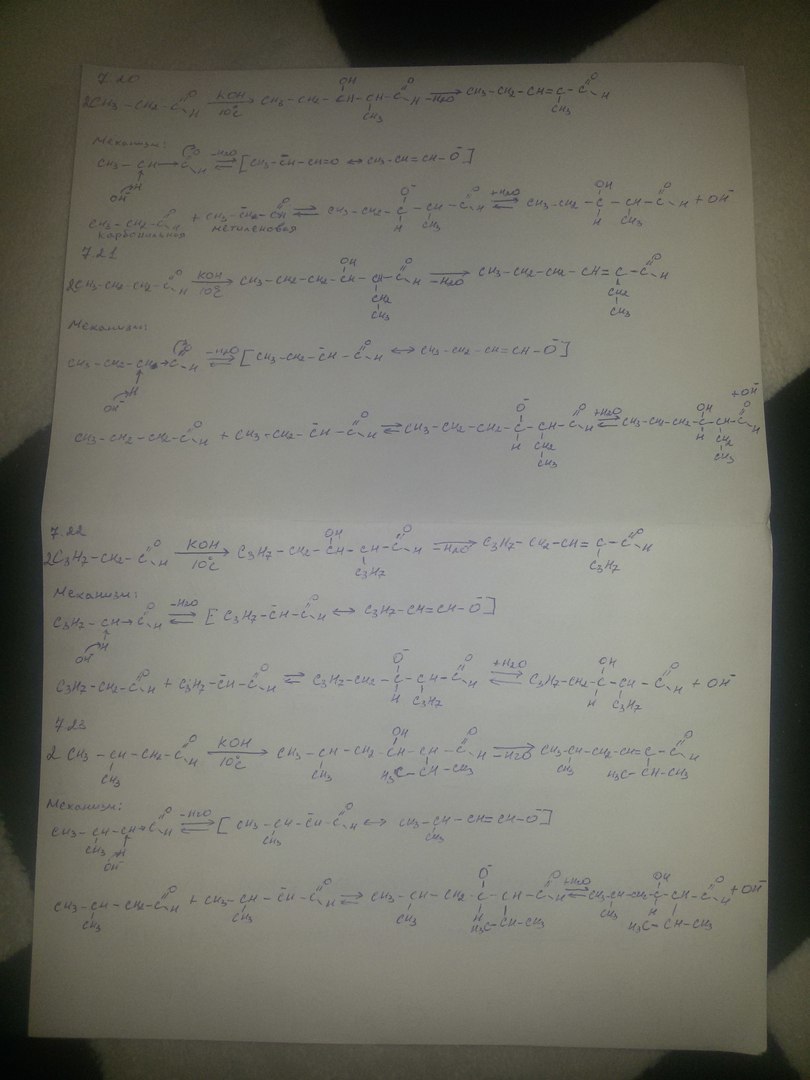 7.20
2CH₃-CH₂-C(=O)H —KOH, 10°C→ CH₃-CH₂-CH(OH)-CH(CH₃)-C(=O)H —-H₂O→ CH₃-CH₂-CH=C(CH₃)-C(=O)H
Механизм:
CH₃-CH(H)→C(=O)H ⇌ -H₂O [CH₃-C̄H-CH=O ↔ CH₃-CH=CH-O⁻]
OH⁻
CH₃-CH₂-C(=O)H + CH₃-C̄H₂-C(=O)H ⇌ CH₃-CH₂-C(O⁻)(H)-CH(CH₃)-C(=O)H ⇌ +H₂O CH₃-CH₂-C(OH)(H)-CH(CH₃)-C(=O)H + OH⁻
карбонильная метиленовая
7.21
2CH₃-CH₂-CH₂-C(=O)H —KOH, 10°C→ CH₃-CH₂-CH₂-CH(OH)-CH(CH₂-CH₃)-C(=O)H —-H₂O→ CH₃-CH₂-CH₂-CH=C(CH₂-CH₃)-C(=O)H
Механизм:
CH₃-CH₂-CH₂(H)→C(=O)H ⇌ -H₂O [CH₃-CH₂-C̄H-C(=O)H ↔ CH₃-CH₂-CH=CH-O⁻]
OH⁻
CH₃-CH₂-CH₂-C(=O)H + CH₃-CH₂-C̄H-C(=O)H ⇌ CH₃-CH₂-CH₂-C(O⁻)(H)-CH(CH₂-CH₃)-C(=O)H ⇌ +H₂O CH₃-CH₂-CH₂-C(OH)(H)-CH(CH₂-CH₃)-C(=O)H + OH⁻
7.22
2C₃H₇-CH₂-C(=O)H —KOH, 10°C→ C₃H₇-CH₂-CH(OH)-CH(C₃H₇)-C(=O)H —-H₂O→ C₃H₇-CH₂-CH=C(C₃H₇)-C(=O)H
Механизм:
C₃H₇-CH(H)→C(=O)H ⇌ -H₂O [C₃H₇-C̄H-C(=O)H ↔ C₃H₇-CH=CH-O⁻]
OH⁻
C₃H₇-CH₂-C(=O)H + C₃H₇-C̄H-C(=O)H ⇌ C₃H₇-CH₂-C(O⁻)(H)-CH(C₃H₇)-C(=O)H ⇌ +H₂O C₃H₇-CH₂-C(OH)(H)-CH(C₃H₇)-C(=O)H + OH⁻
7.23
2CH₃-CH(CH₃)-CH₂-C(=O)H —KOH, 10°C→ CH₃-CH(CH₃)-CH₂-CH(OH)-CH(H₃C-CH-CH₃)-C(=O)H —-H₂O→ CH₃-CH(CH₃)-CH₂-CH=C(H₃C-CH-CH₃)-C(=O)H
Механизм:
CH₃-CH(CH₃)-CH(H)→C(=O)H ⇌ -H₂O [CH₃-CH(CH₃)-C̄H-C(=O)H ↔ CH₃-CH(CH₃)-CH=CH-O⁻]
OH⁻
CH₃-CH(CH₃)-CH₂-C(=O)H + CH₃-CH(CH₃)-C̄H-C(=O)H ⇌ CH₃-CH(CH₃)-CH₂-C(O⁻)(H)-CH(H₃C-CH-CH₃)-C(=O)H ⇌ +H₂O CH₃-CH(CH₃)-CH₂-C(OH)(H)-CH(H₃C-CH-CH₃)-C(=O)H + OH⁻